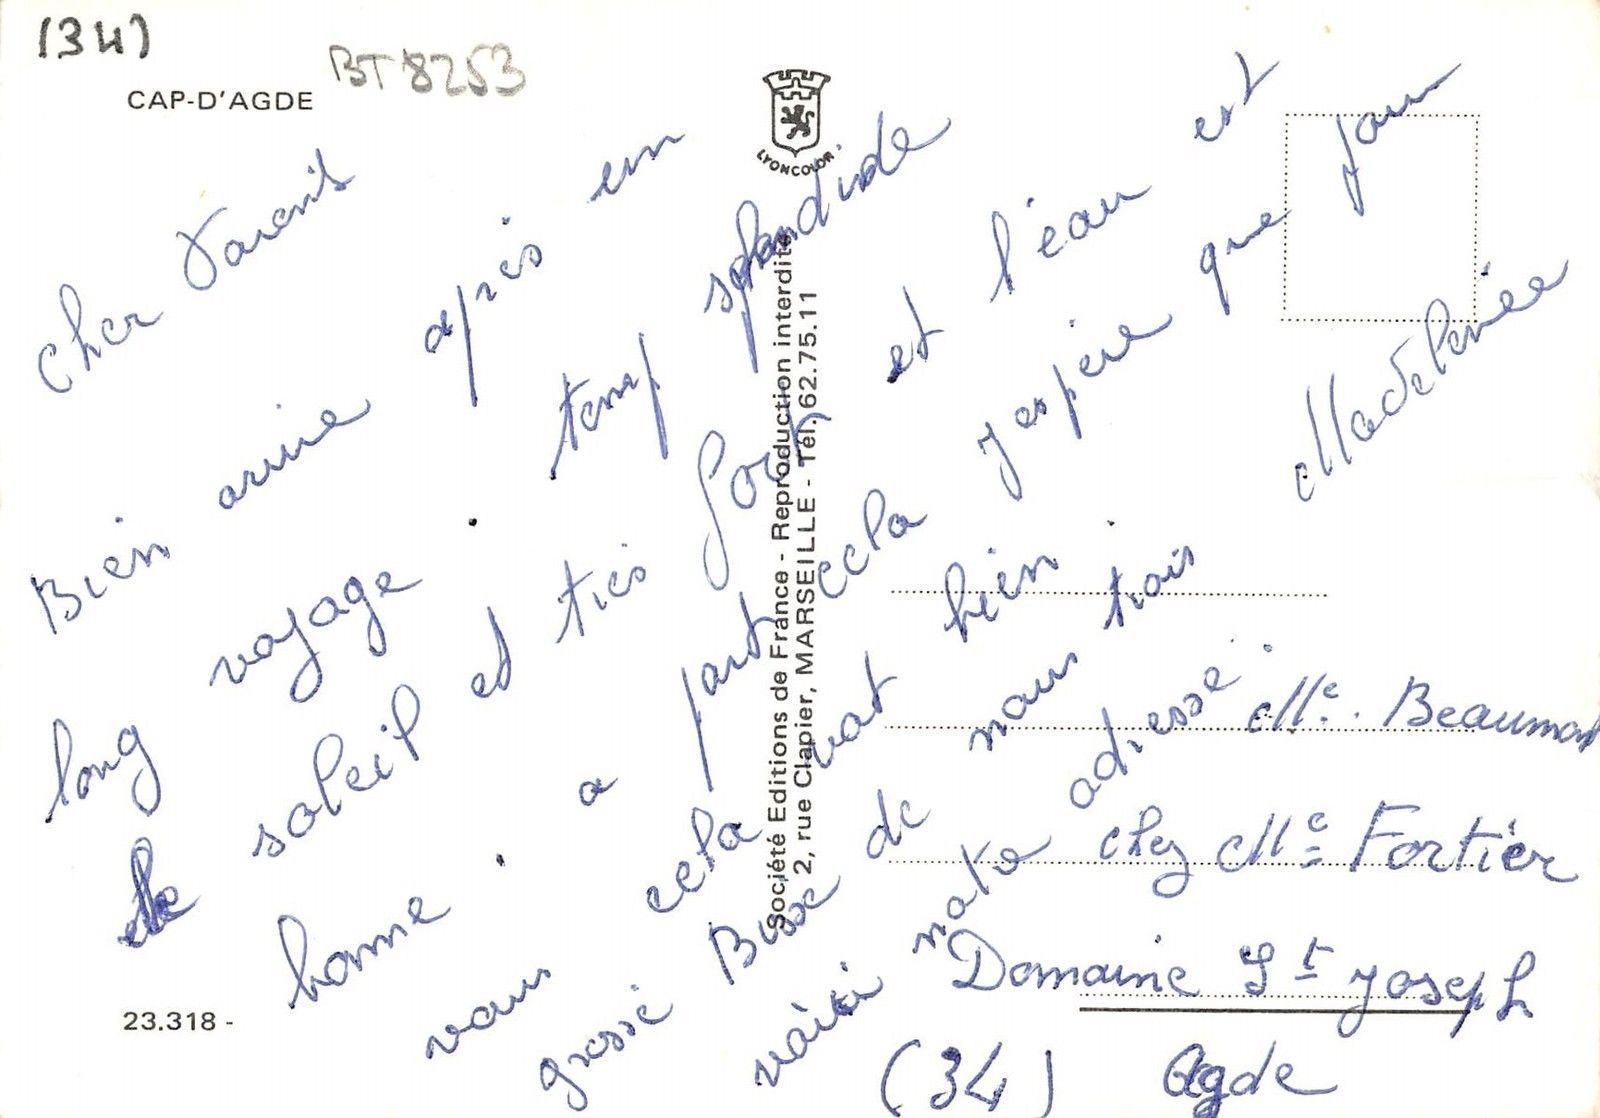 (34)
BT 8253
CAP-D'AGDE
LYONCOLOR
Cher Parents
Bien arrive après un
long voyage. temp splendide
le soleil et très fort et l'eau est
bonne. a part cela j'espère que pour
vous cela vat bien.
grosse Bise de nous trois
voici notre adresse.
Me. Beaumont
chez Me Fortier
Domaine St Joseph
(34) Agde
Société Editions de France - Reproduction interdite
2, rue Clapier, MARSEILLE - Tél. 62.75.11
23.318 -